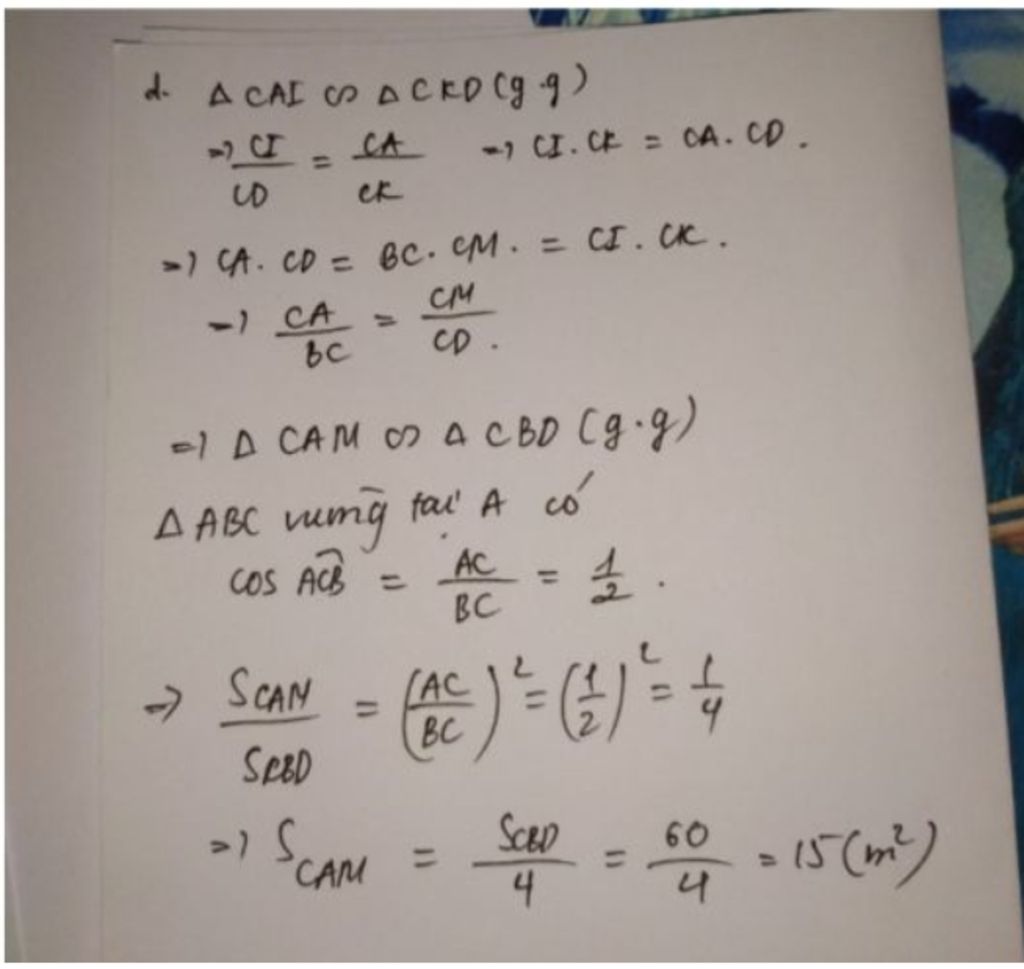 d. Δ CAI ∽ Δ CKD (g.g)
=> CI/CD = CA/CK => CI.CK = CA.CD.
=> CA.CD = BC.CM. = CI.CK.
=> CA/BC = CM/CD.
=> Δ CAM ∽ Δ CBD (g.g)
Δ ABC vuông tại A có
cos ACB = AC/BC = 1/2.
=> SCAM/SCBD = (AC/BC)² = (1/2)² = 1/4
=> SCAM = SCBD/4 = 60/4 = 15 (m²)